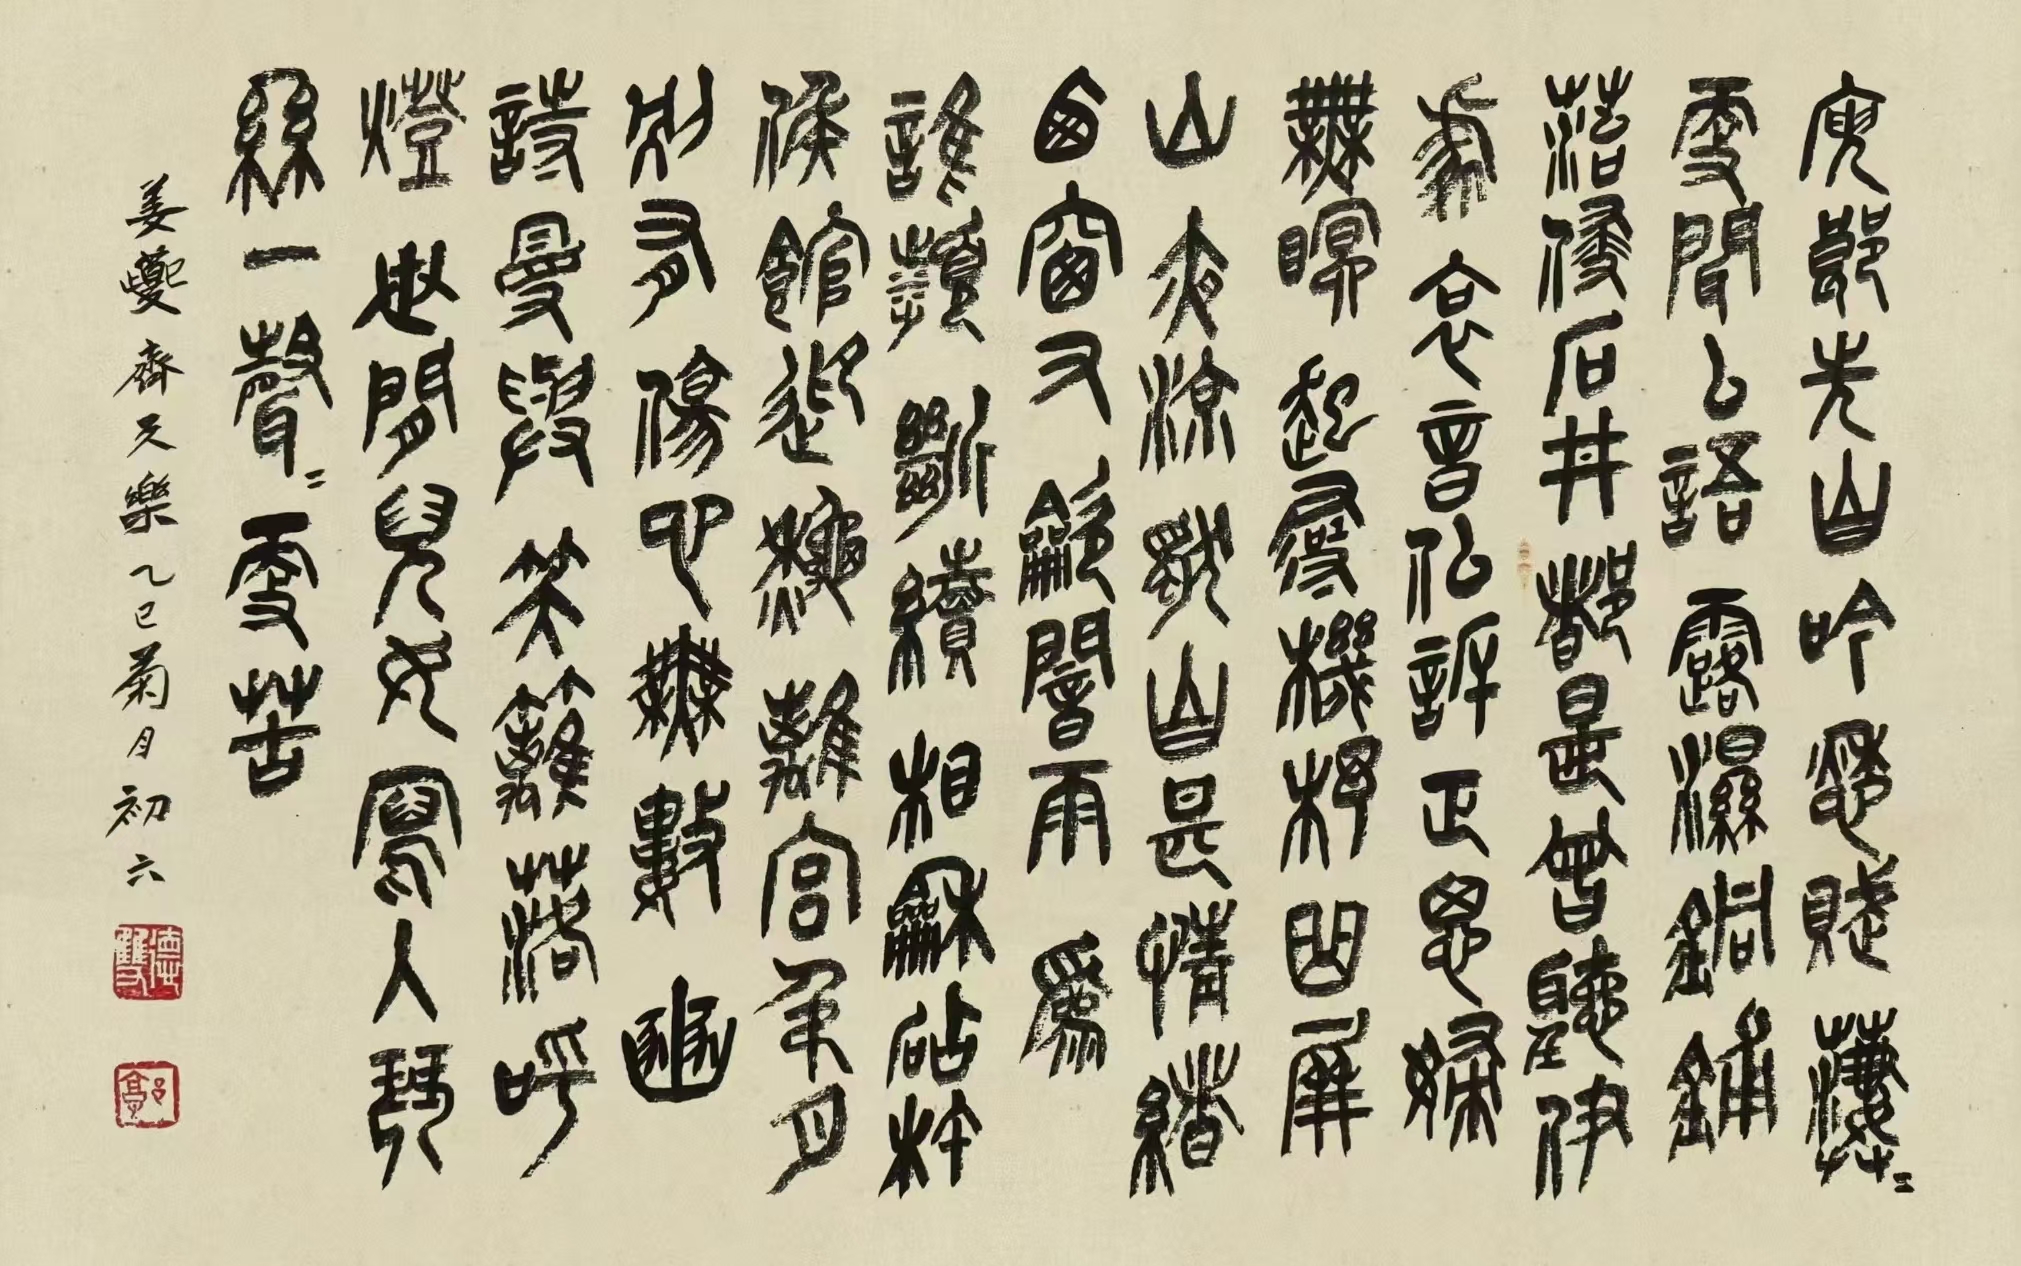 庾郎先自吟愁賦萋〻
更聞厶語露濕銅鋪
苔侵石井都是曾聽伊
處哀音似訴正思婦
無瞑起尋機杼曲屏
山夜涼獨自甚情緒
西窗又龡闇雨為
誰頻斷續相龢砧杵
候館迎秋離宮弔月
別有傷心無數豳
詩曼與笑籬落呼
燈世間兒女寫人琴
絲一聲〻更苦
姜夔齊天樂乙巳菊月初六
德雙
郭